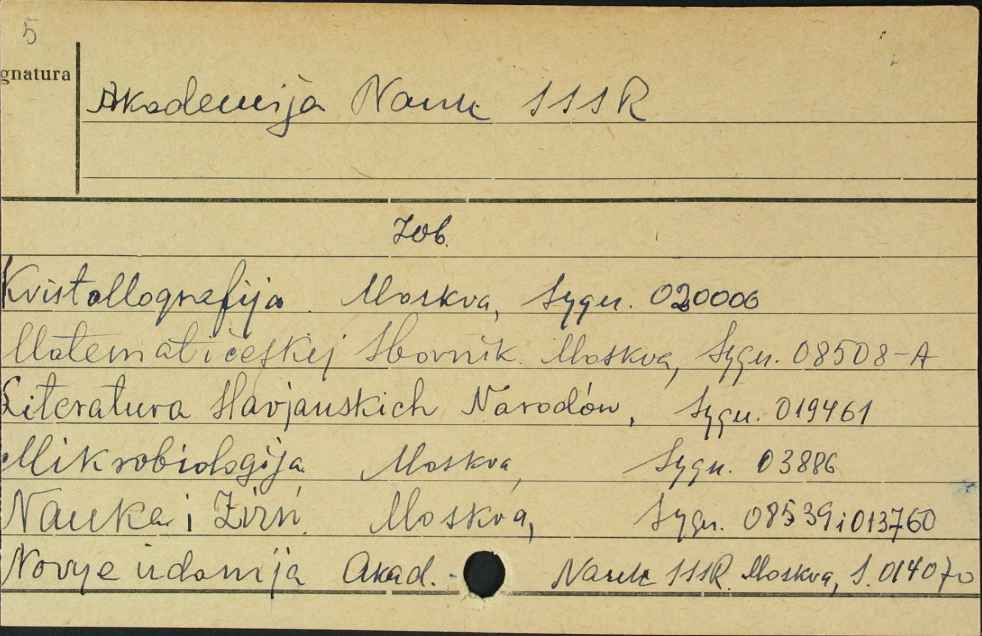 5
gnatura
Akademija Nauk SSSR
Zob.
Kristallografija. Moskva, Sygn. 020006
Matematičeskij Sbornik. Moskva, Sygn. 08508-A
Literatura Slavjanskich Narodów, Sygn. 019461
Mikrobiologija. Moskva, Sygn. 03886
Nauka i Žizń. Moskva, Sygn. 08539 i 013760
Novye izdanija Akad. Nauk SSSR. Moskva, S. 014070